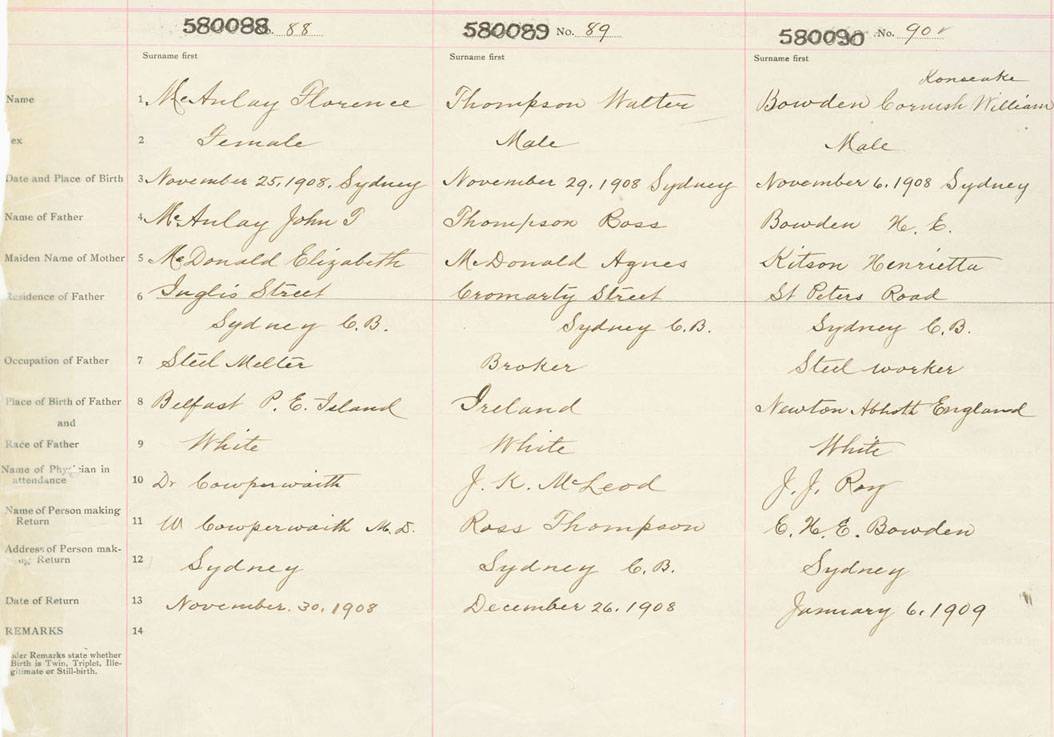 580088 No. 88
580089 No. 89
580090 No. 90
Surname first
Surname first
Surname first
Name 1 McAulay Florence
Thompson Walter
Bowden Cornish William
Sex 2 Female
Male
Male
Date and Place of Birth 3 November 25, 1908, Sydney
November 29, 1908 Sydney
November 6, 1908 Sydney
Name of Father 4 McAulay John T
Thompson Ross
Bowden H. E.
Maiden Name of Mother 5 McDonald Elizabeth
McDonald Agnes
Kitson Henrietta
Residence of Father 6 Inglis Street
Cromarty Street
St Peters Road
Sydney C.B.
Sydney C.B.
Sydney C.B.
Occupation of Father 7 Steel Melter
Broker
Steel worker
Place of Birth of Father 8 Belfast P. E. Island
Ireland
Newton Abhoth England
and
Race of Father 9 White
White
White
Name of Physician in
attendance 10 Dr Cowperwaith
J. K. McLeod
J. J. Roy
Name of Person making
Return 11 W Cowperwaith M.D.
Ross Thompson
C. H. E. Bowden
Address of Person mak-
ing Return 12 Sydney
Sydney C.B.
Sydney
Date of Return 13 November. 30, 1908
December 26, 1908
January 6, 1909
REMARKS 14
Under Remarks state whether
Birth is Twin, Triplet, Ille-
gitimate or Still-birth.